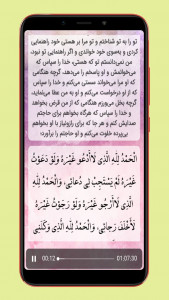 تو را به تو شناختم و تو مرا بر هستی خود راهنمایی
کردی و بسوی خود خواندی و اگر تو نبودی
من نمی‌دانستم تو که هستی، خدا را سپاس که
می‌خوانمش و او پاسخم را می‌دهد، گرچه هنگامی
که مرا می‌خواند سستی می‌کنم و خدا را سپاس
که از او درخواست می‌کنم و او به من عطا می‌نماید،
گرچه بخل می‌ورزم هنگامی که از من قرض بخواهد
و خدا را سپاس که هرگاه بخواهم برای حاجتم
صدایش کنم و هر جا که برای رازونیاز با او بخواهم
بی‌پرده خلوت می‌کنم و او حاجتم را برآورد
الْحَمْدُ لِلَّهِ الَّذِی لَاأَدْعُو غَیْرَهُ وَلَوْ دَعَوْتُ
غَیْرَهُ لَمْ یَسْتَجِبْ لِی دُعَائِی، وَالْحَمْدُ لِلَّهِ
الَّذِی لَاأَرْجُو غَیْرَهُ وَلَوْ رَجَوْتُ غَیْرَهُ
لَأَخْلَفَ رَجَائِی، وَالْحَمْدُ لِلَّهِ الَّذِی وَکَلَنِی
00:12 01:07:30